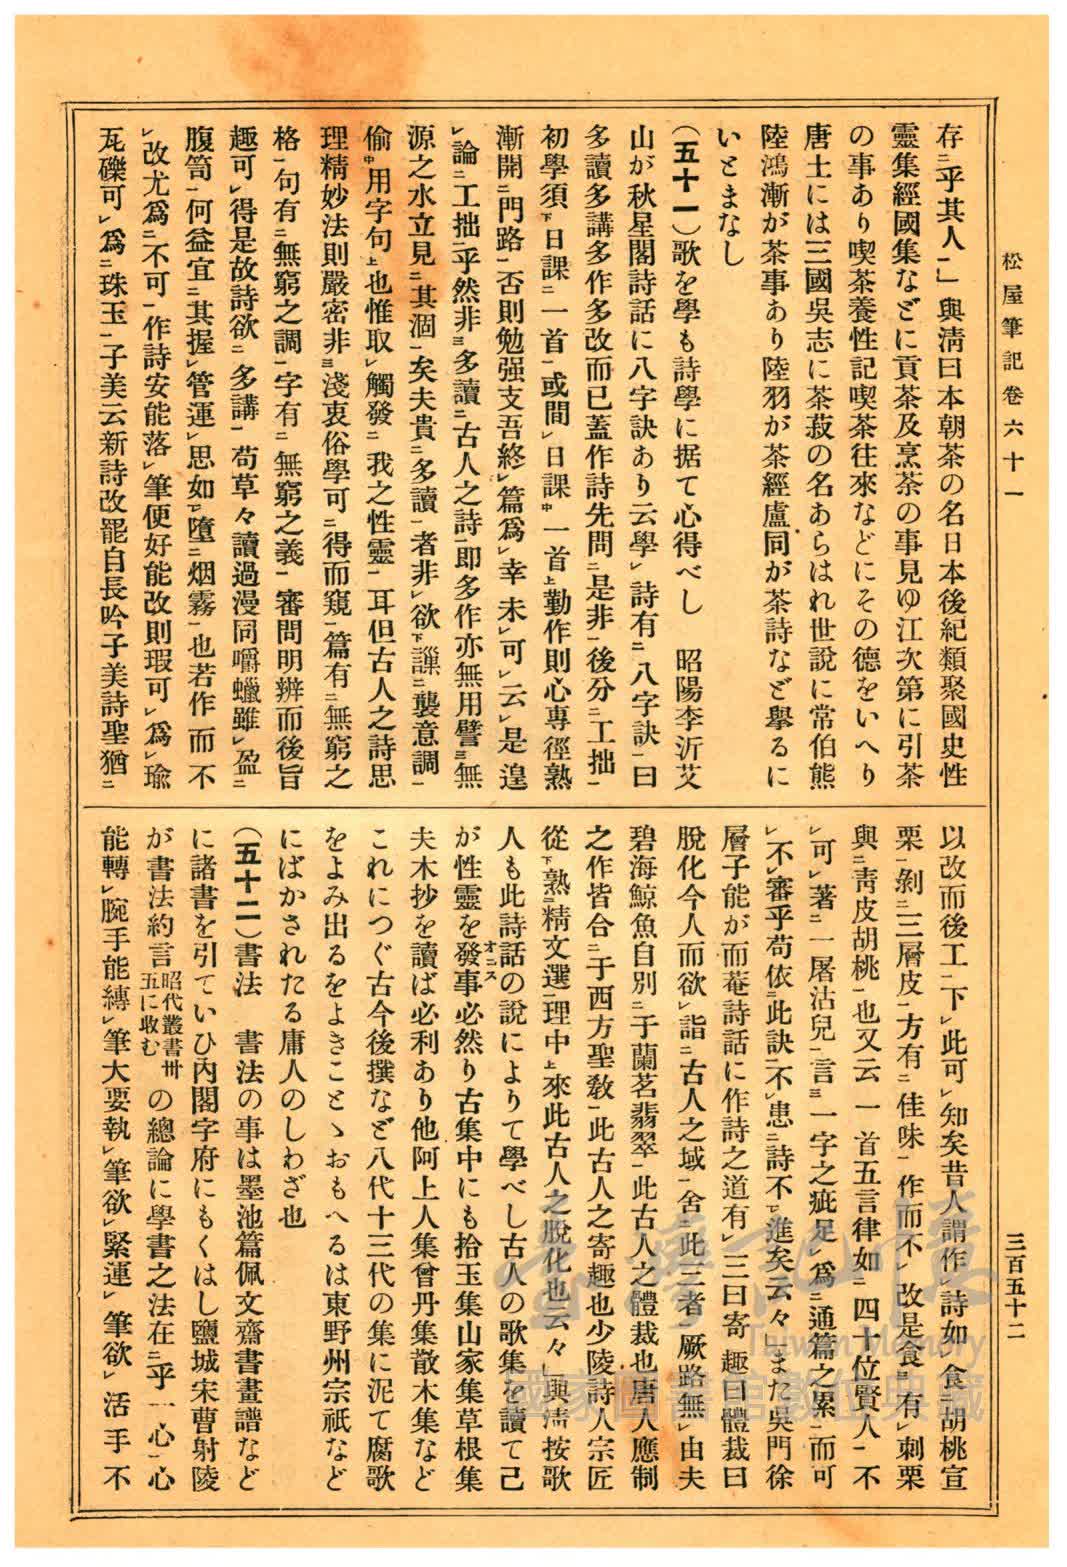 松屋筆記卷六十一
三百五十二
存㆓乎其人㆒」與淸曰本朝茶の名日本後紀類聚國史性
靈集經國集などに貢茶及烹茶の事見ゆ江次第に引茶
の事あり喫茶養性記喫茶往來などにその德をいへり
唐土には三國吳志に茶菽の名あらはれ世說に常伯熊
陸鴻漸が茶事あり陸羽が茶經盧同が茶詩など擧るに
いとまなし
(五十一)歌を學も詩學に据て心得べし 昭陽李沂艾
山が秋星閣詩話に八字訣あり云學㆑詩有㆓八字訣㆒曰
多讀多講多作多改而已蓋作詩先問㆓是非㆒後分㆓工拙㆒
初學須㆘日課㆓一首㆒或間㆑日課㆗一首㆖勤作則心專徑熟
漸開㆓門路㆒否則勉强支吾終㆑篇爲㆑幸未㆑可㆑云㆑是遑
㆑論㆓工拙㆒乎然非㆔多讀㆓古人之詩㆒卽多作亦無用譬㆔無
源之水立見㆓其涸㆒矣夫貴㆓多讀㆒者非㆑欲㆘㆓襲意調㆒
偷㆗用字句㆖也惟取㆑觸發㆓我之性靈㆒耳但古人之詩思
理精妙法則嚴密非㆔淺衷俗學可㆓得而窺㆒篇有㆓無窮之
格㆒句有㆓無窮之調㆒字有㆓無窮之義㆒審問明辨而後旨
趣可㆑得是故詩欲㆓多講㆒苟草々讀過漫同嚼蠟雖㆑盈㆓
腹笥㆒何益宜㆓其握㆑管運㆑思如㆘墮㆓烟霧㆒也若作而不
㆑改尤爲㆓不可㆒作詩安能落㆑筆便好能改則瑕可㆑爲㆑瑜
瓦礫可㆑爲㆓珠玉㆒子美云新詩改罷自長吟子美詩聖猶㆓
以改而後工㆒下㆑此可㆑知矣昔人謂作㆑詩如㆑食胡桃宣
栗㆒剝㆓三層皮㆒方有㆓佳味㆒作而不㆑改是食㆔有㆑刺栗
與㆓靑皮胡桃㆒也又云一首五言律如㆓四十位賢人㆒不
㆑可㆑著㆓一屠沽兒㆒言㆔一字之疵足㆑爲㆓通篇之累㆒而可
㆑不㆑審乎苟依㆓此訣㆒不㆑患㆓詩不㆑進矣云々」また吳門徐
層子能が而菴詩話に作詩之道有㆑三曰寄趣曰體裁曰
脫化今人而欲㆑詣㆓古人之域㆒舍㆓此三者㆒厥路無㆑由夫
碧海鯨魚自別㆓于蘭苕翡翠㆒此古人之體裁也唐人應制
之作皆合㆓于西方聖敎㆒此古人之寄趣也少陵詩人宗匠
從㆘熟㆓精文選㆒理中㆖來此古人之脫化也云々」與淸按歌
人も此詩話の說によりて學べし古人の歌集を讀て己
が性靈を發事必然り古集中にも拾玉集山家集草根集
オコス
夫木抄を讀ば必利あり他阿上人集曾丹集散木集など
これにつぐ古今後撰など八代十三代の集に泥て腐歌
をよみ出るをよきことゝおもへるは東野州宗祇など
にばかされたる庸人のしわざ也
(五十二)書法 書法の事は墨池篇佩文齋書畫譜など
に諸書を引ていひ內閣字府にもくはし鹽城宋曹射陵
が書法約言 昭代叢書卅五に收む の總論に學書之法在㆓乎一心㆒心
能轉㆑腕手能縳㆑筆大要執㆑筆欲㆑緊運㆑筆欲㆑活手不
臺灣記憶
Taiwan Memory
國家圖書館數位典藏